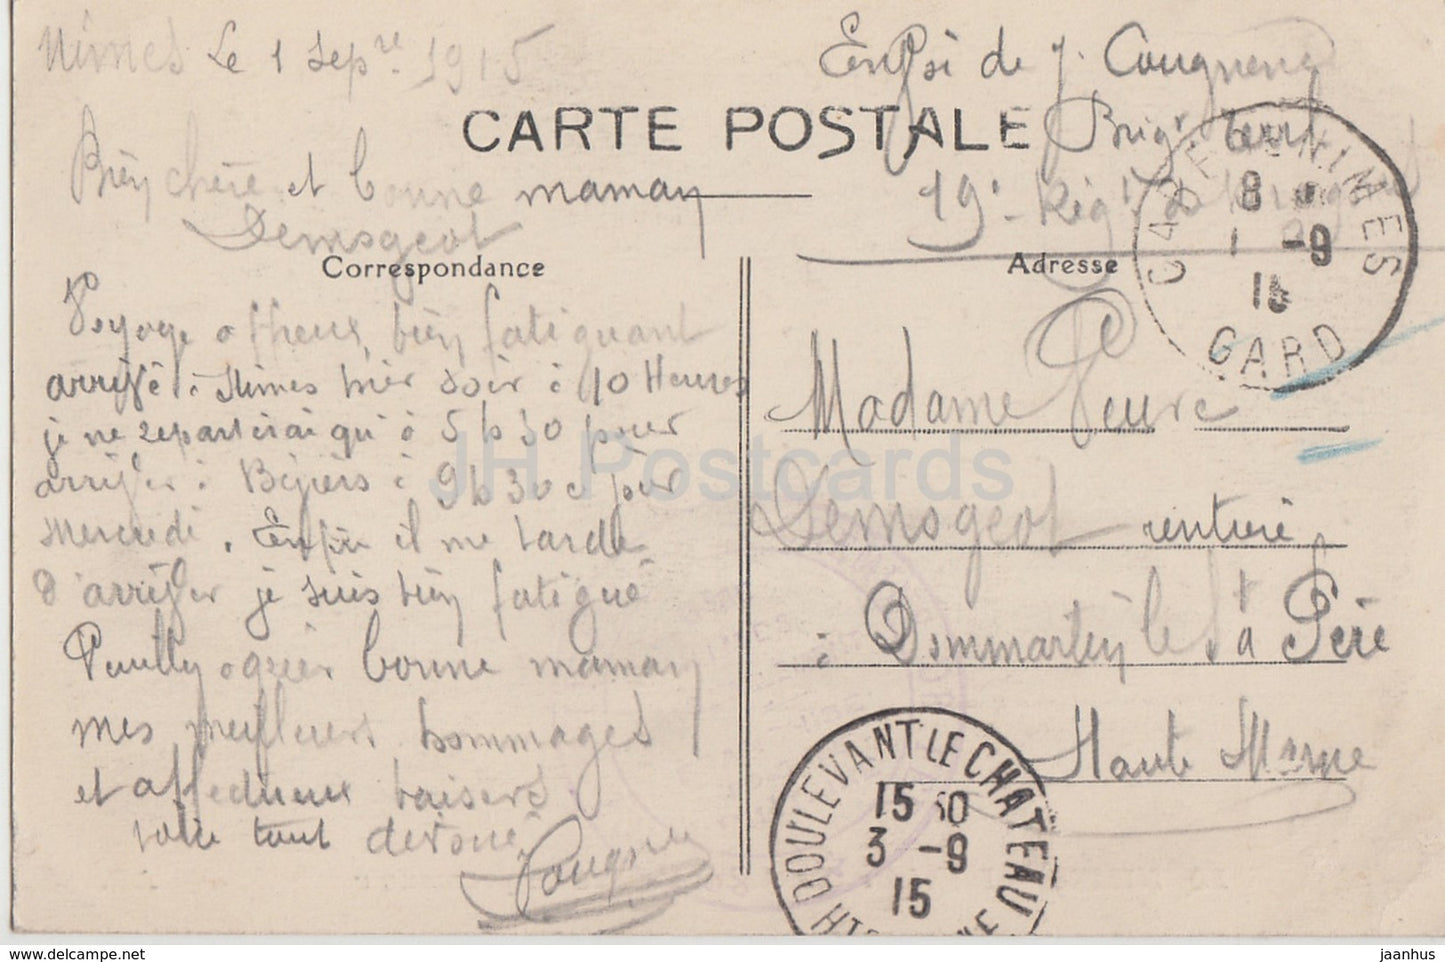 Nîmes Le 1 Sepre 1915
Exp. de J. Cougnenc
Brigr terrl
19e Régt
CARTE POSTALE
Bien chère et bonne maman
Demogeot
Correspondance
Adresse
Voyage affreux bien fatiguant
arrivé à Nîmes hier soir à 10 Heures
je ne repartirai qu'à 5 h 30 pour
arriver à Béziers à 9h30 ce soir
Mercredi. Enfin il me tarde
d'arriver je suis bien fatigué
Veuillez agréer bonne maman
mes meilleurs hommages
et affectueux baisers
votre tout dévoué
Madame Veuve
Demogeot rentière
à Dommartin le St Père
Haute Marne
GARE DE NIMES
8
1 -9
15
GARD
DOULEVANT LE CHATEAU
15 30
3 -9
15
HTE MARNE
JH Postcards
www.delcampe.net
jaanhus